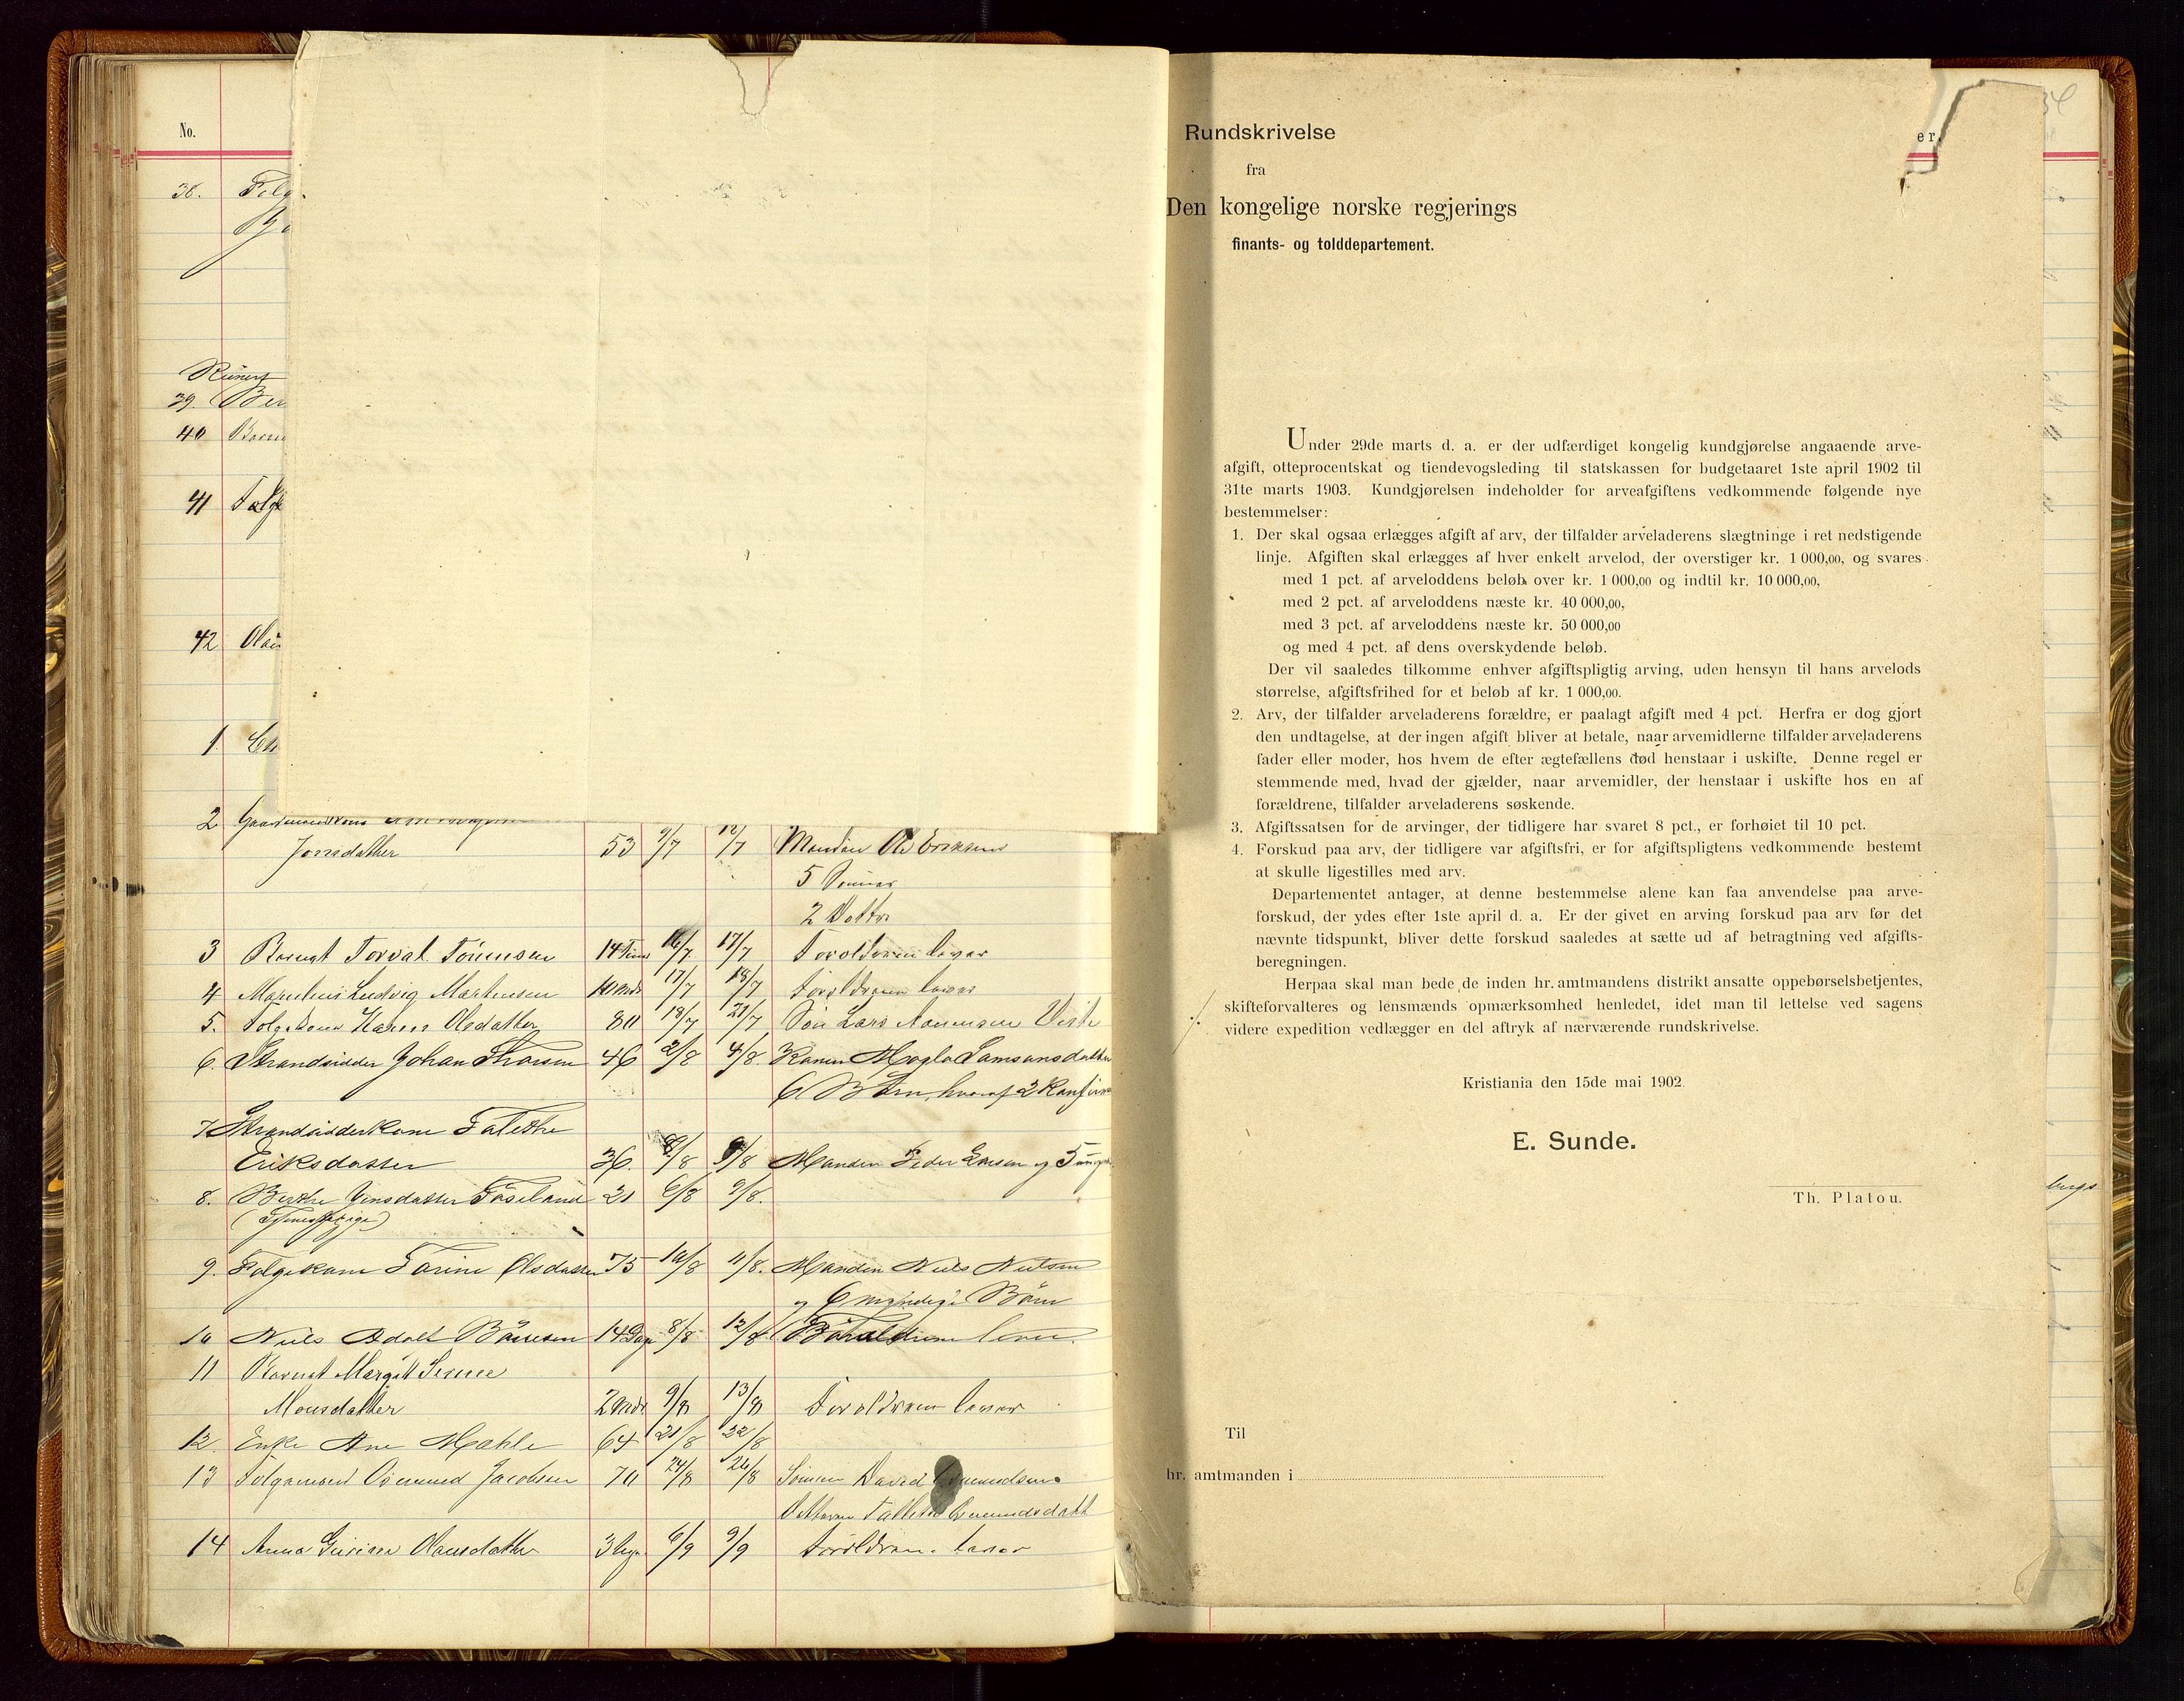 No.
38.
39. Ber
40
41 Følge
42 Olau
1.
2
Jonsdatter 53 9/7 12/7 Manden Ole Eriksen
5 Sønner
2 Døttre
3 Torval Tönnesen 14 Timer 16/7 17/7 Foreldrene lever
4 Ludvig Martensen 17/7 18/7 Foreldrene lever
5. Følgekone Karen Olsdatter 80 18/7 21/7 Søn Lars
6. Strandsidder Johan Thorsen 46 2/8 4/8. Konen Samsonsdatter
6 Børn, hvoraf 2 Konfirm
7 Strandsidderkone Talethe
Eriksdatter 36. /8 9/8 Manden Peder Larsen og 5
8. Berthe Jensdatter 21 6/8 9/8.
(Tjenestepige)
9. Følgekone Torine Olsdatter 75 10/8 11/8. Manden Niels Nielsen
og 6 myndige Børn
10 Niels Adolf 14 Dage 8/8 12/8 Forældrene lever
11 Margit
Monsdatter 2 Mdr 9/8 13/8 Foreldrene lever
12. Enke Ane Mahle 64 21/8 22/8
13 Følgemand Osmund Jacobsen 70 24/8 26/8 Sønnen David Osmundsen
Datteren Osmundsdatt
14 Anna Olausdatter 3 6/9 9/9 Foreldrene lever
Rundskrivelse
er.
fra
Den kongelige norske regjerings
finants- og tolddepartement.
Under 29de marts d. a. er der udfærdiget kongelig kundgjørelse angaaende arve-
afgift, otteprocentskat og tiendevogsleding til statskassen for budgetaaret 1ste april 1902 til
31te marts 1903. Kundgjørelsen indeholder for arveafgiftens vedkommende følgende nye
bestemmelser:
1. Der skal ogsaa erlægges afgift af arv, der tilfalder arveladerens slægtninge i ret nedstigende
linje. Afgiften skal erlægges af hver enkelt arvelod, der overstiger kr. 1 000,00, og svares
med 1 pct. af arveloddens beløb over kr. 1 000,00 og indtil kr. 10 000,00,
med 2 pct. af arveloddens næste kr. 40 000,00,
med 3 pct. af arveloddens næste kr. 50 000,00
og med 4 pct. af dens overskydende beløb.
Der vil saaledes tilkomme enhver afgiftspligtig arving, uden hensyn til hans arvelods
størrelse, afgiftsfrihed for et beløb af kr. 1 000,00.
2. Arv, der tilfalder arveladerens forældre, er paalagt afgift med 4 pct. Herfra er dog gjort
den undtagelse, at der ingen afgift bliver at betale, naar arvemidlerne tilfalder arveladerens
fader eller moder, hos hvem de efter ægtefællens død henstaar i uskifte. Denne regel er
stemmende med, hvad der gjælder, naar arvemidler, der henstaar i uskifte hos en af
forældrene, tilfalder arveladerens søskende.
3. Afgiftssatsen for de arvinger, der tidligere har svaret 8 pct., er forhøiet til 10 pct.
4. Forskud paa arv, der tidligere var afgiftsfri, er for afgiftspligtens vedkommende bestemt
at skulle ligestilles med arv.
Departementet antager, at denne bestemmelse alene kan faa anvendelse paa arve-
forskud, der ydes efter 1ste april d. a. Er der givet en arving forskud paa arv før det
nævnte tidspunkt, bliver dette forskud saaledes at sætte ud af betragtning ved afgifts-
beregningen.
Herpaa skal man bede de inden hr. amtmandens distrikt ansatte oppebørselsbetjentes,
skifteforvalteres og lensmænds opmærksomhed henledet, idet man til lettelse ved sagens
videre expedition vedlægger en del aftryk af nærværende rundskrivelse.
Kristiania den 15de mai 1902.
E. Sunde.
Th. Platou.
Til
hr. amtmanden i